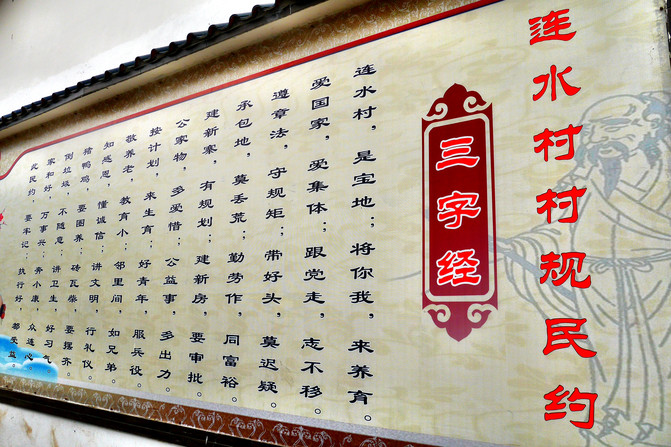 连水村村规民约
三字经
连水村，是宝地；将你我，来养育。
爱国家，爱集体；跟党走，志不移。
遵章法，守规矩；带好头，莫迟疑。
承包地，莫丢荒；勤劳作，同富裕。
建新寨，有规划；建新房，要审批。
公家物，多爱惜；公益事，多出力。
按计划，来生育；好青年，服兵役。
敬养老，教育小；邻里间，如兄弟。
知感恩，懂诚信；讲文明，行礼仪。
猪鸭鸡，要圈养；砖瓦柴，要摆齐。
倒垃圾，不随意；讲卫生，好习气。
家和好，万事兴；奔小康，众连心。
民约，要牢记；执行好，都受益。